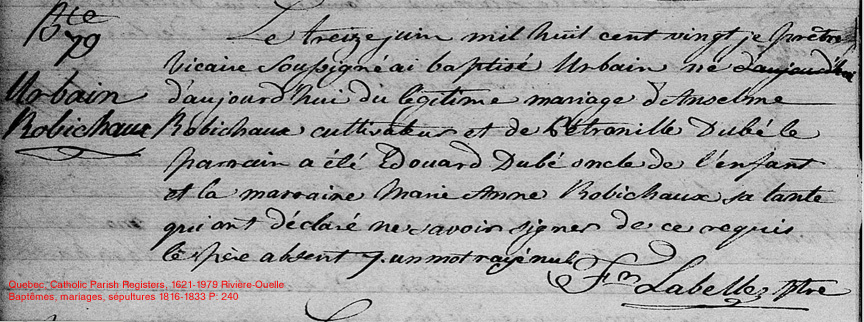 Bte
79
Urbain
Robichaux
Le treize juin mil huit cent vingt je prêtre
vicaire soussigné ai baptisé Urbain né d'aujourd'hui
d'aujourd'hui du légitime mariage d'Anselme
Robichaux cultivateur et de Pétronille Dubé le
parrain a été Edouard Dubé oncle de l'enfant
et la marraine Marie Anne Robichaux sa tante
qui ont déclaré ne savoir signer de ce requis
le père absent un mot rayé nul
Labelle, Ptre
Quebec, Catholic Parish Registers, 1621-1979 Rivière-Ouelle
Baptêmes, mariages, sépultures 1816-1833 P: 240